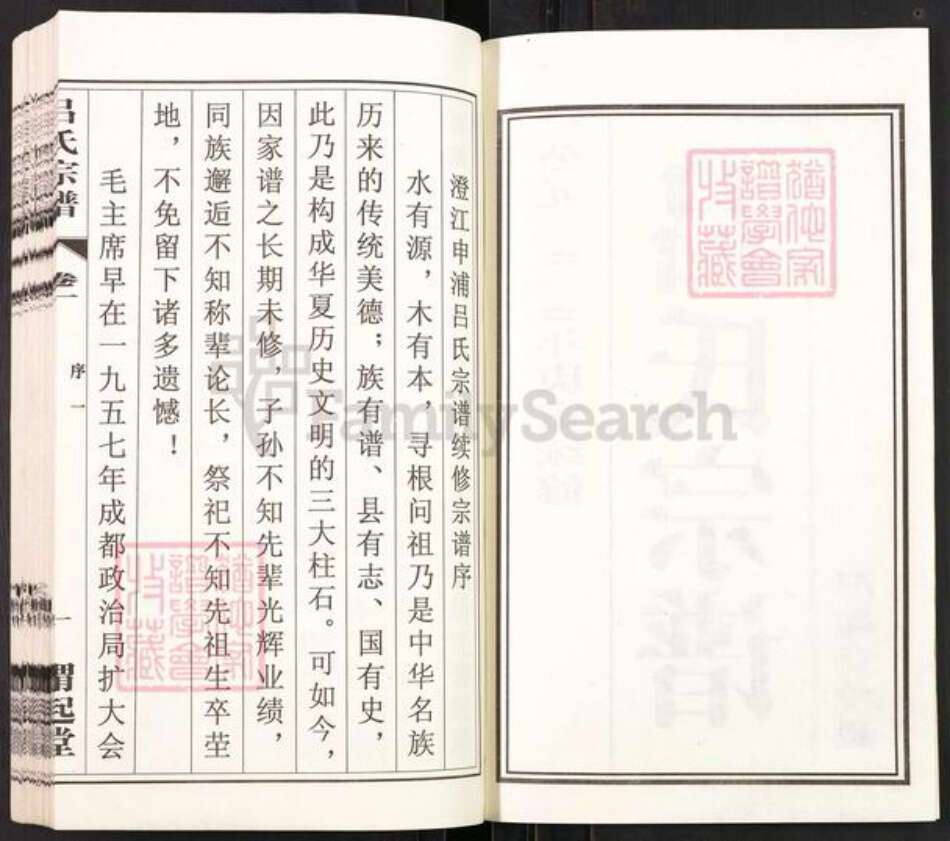 澄江申浦吕氏宗谱续修宗谱序
水有源，木有本，寻根问祖乃是中华名族
历来的传统美德；族有谱、县有志、国有史，
此乃是构成华夏历史文明的三大柱石。可如今，
因家谱之长期未修，子孙不知先辈光辉业绩，
同族邂逅不知称辈论长，祭祀不知先祖生卒茔
地，不免留下诸多遗憾！
毛主席早在一九五七年成都政治局扩大会
吕氏宗谱
卷一
序一
一
渭起堂
FamilySearch
氏宗谱